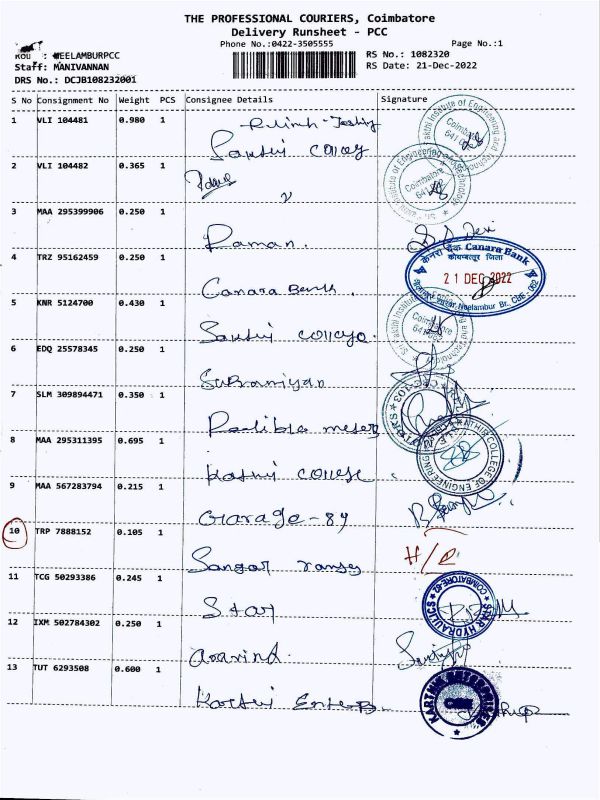 THE PROFESSIONAL COURIERS, Coimbatore
Delivery Runsheet - PCC
Phone No.:0422-3505555 Page No.:1
NEELAMBURPCC RS No.: 1082320
Staff: MANIVANNAN RS Date: 21-Dec-2022
DRS No.: DCJB108232001
S No Consignment No Weight PCS Consignee Details Signature
1 VLI 104481 0.980 1
Sakthi College
2 VLI 104482 0.365 1
3 MAA 295399906 0.250 1
Raman.
4 TRZ 95162459 0.250 1
Canara Bank.
केनरा बैंक Canara Bank
कोयम्बत्तूर जिला
21 DEC 2022
Neelambur Br., CBE
5 KNR 5124700 0.430 1
Sakthi College
Coimbatore
6 EDQ 25578345 0.250 1
Subramiyan
7 SLM 309894471 0.350 1
8 MAA 295311395 0.695 1
Kathir College
COLLEGE OF ENGINEERING
9 MAA 567283794 0.215 1
Garage-89
10 TRP 7888152 0.105 1
11 TCG 50293386 0.245 1
Star
STAR HYDRAULICS
12 IXM 502784302 0.250 1
Aravind.
13 TUT 6293508 0.600 1
KARTHIK ENTERPRISES